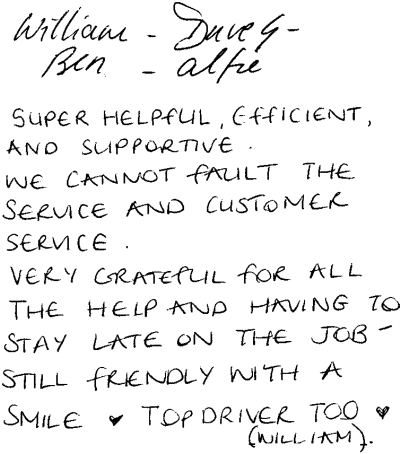 William - Dave G -
Ben - alfie
SUPER HELPFUL, EFFICIENT,
AND SUPPORTIVE.
WE CANNOT FAULT THE
SERVICE AND CUSTOMER
SERVICE.
VERY GRATEFUL FOR ALL
THE HELP AND HAVING TO
STAY LATE ON THE JOB -
STILL FRIENDLY WITH A
SMILE ♥ TOP DRIVER TOO ♥
(WILLIAM).